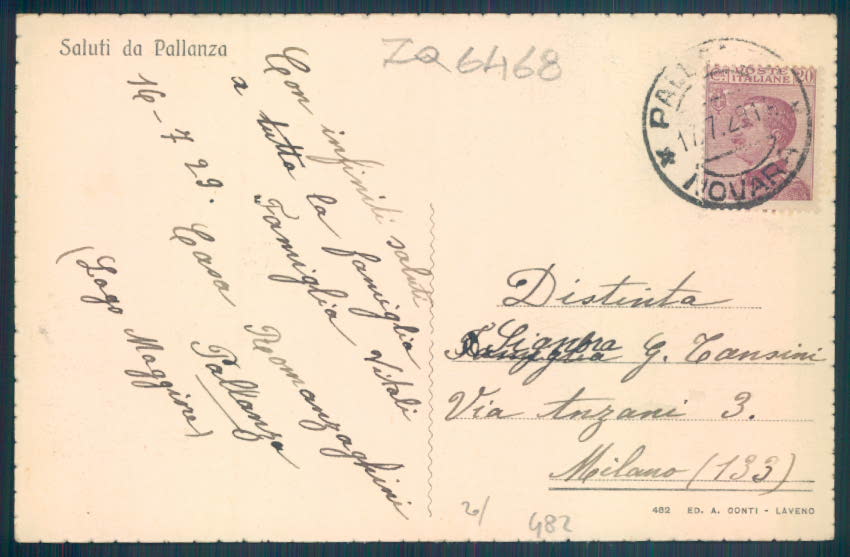 Saluti da Pallanza
ZQ6468
Con infiniti saluti
a tutta la famiglia Vitali
Famiglia Romanzaghini
16-7.29. Casa Pallanza
(Lago Maggiore)
POSTE
ITALIANE
C. 20
17.7.29
* NOVARA
Distinta
Signora G. Tansini
Via Anzani 3.
Milano (133)
482 ED. A. CONTI - LAVENO
2/
482